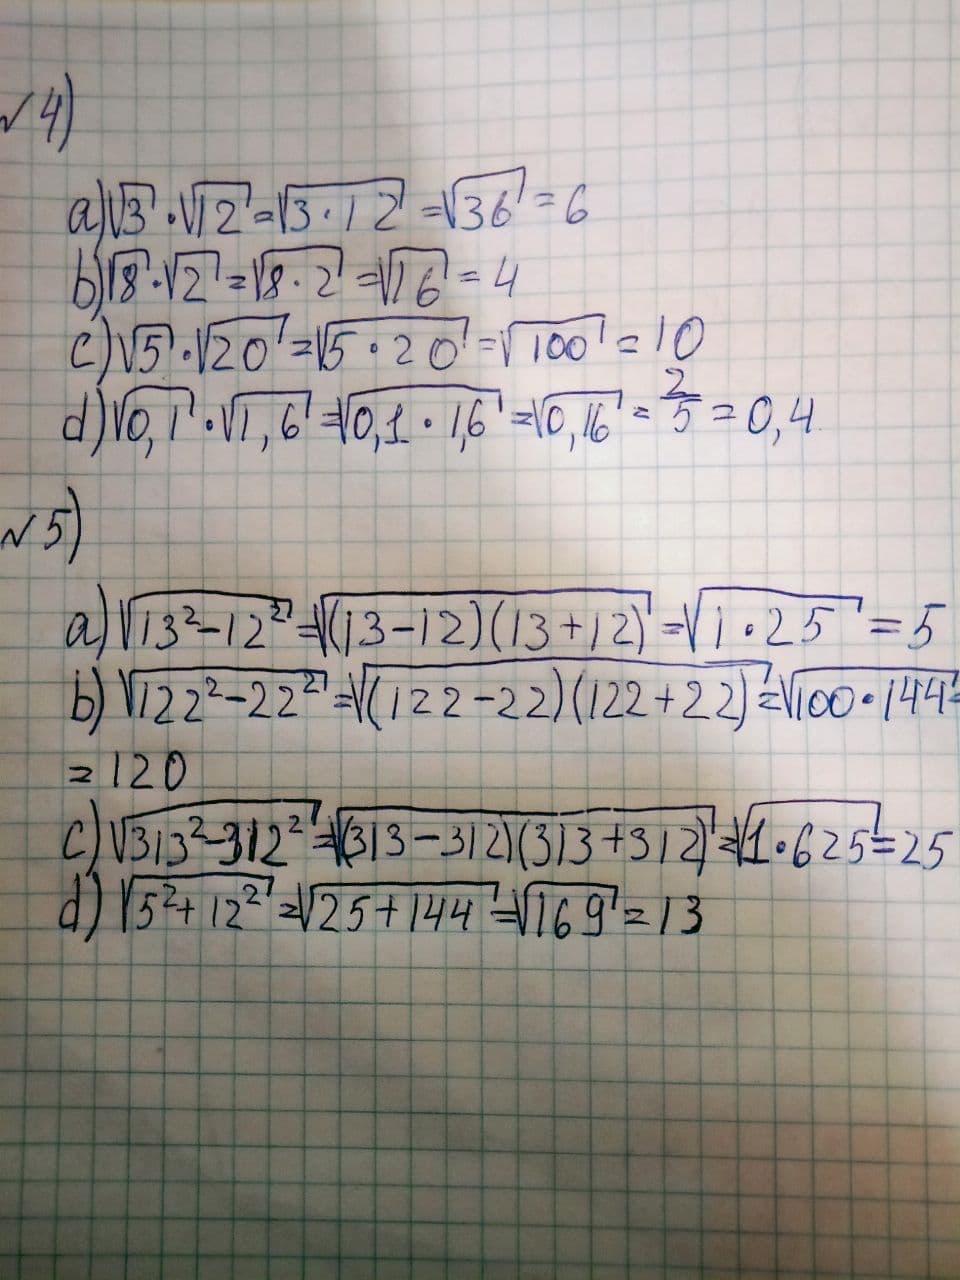 √4)
a)√3·√12=√3·12=√36=6
b)√8·√2=√8·2=√16=4
c)√5·√20=√5·20=√100=10
d)√0,1·√1,6=√0,1·1,6=√0,16=2/5=0,4
√5)
a)√13²-12²=√(13-12)(13+12)=√1·25=5
b)√122²-22²=√(122-22)(122+22)=√100·144=
=120
c)√313²-312²=√(313-312)(313+312)=√1·625=25
d)√5²+12²=√25+144=√169=13